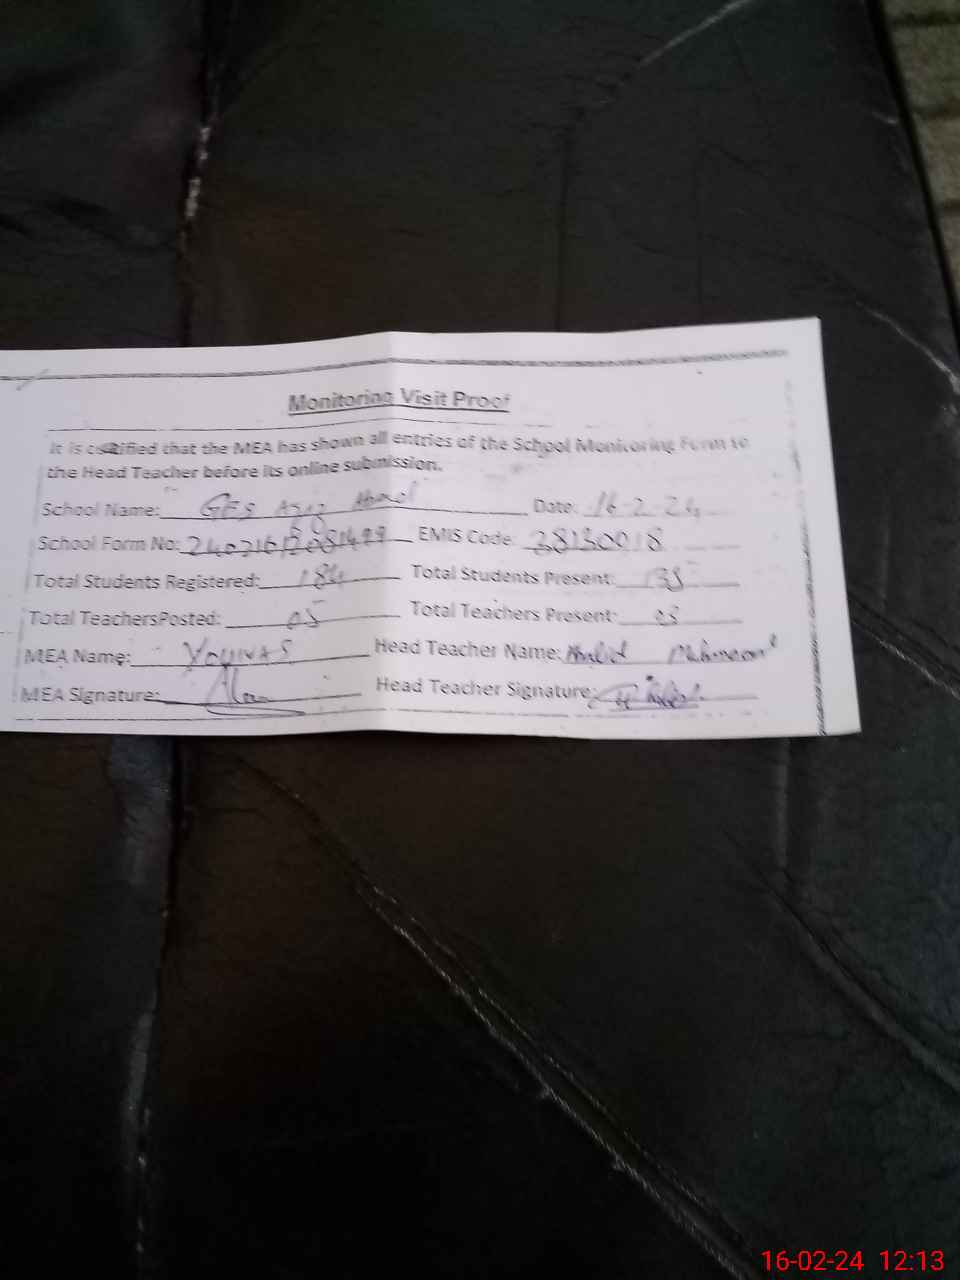 Monitoring Visit Proof
It is certified that the MEA has shown all entries of the School Monitoring Form to
the Head Teacher before its online submission.
School Name: GES Aziz Abad Date: 16-2-24
School Form No: EMIS Code: 38130018
Total Students Registered: 184 Total Students Present: 135
Total TeachersPosted: 05 Total Teachers Present: 03
MEA Name: Younas Head Teacher Name: Khalid Mehmood
MEA Signature: Head Teacher Signature:
16-02-24 12:13